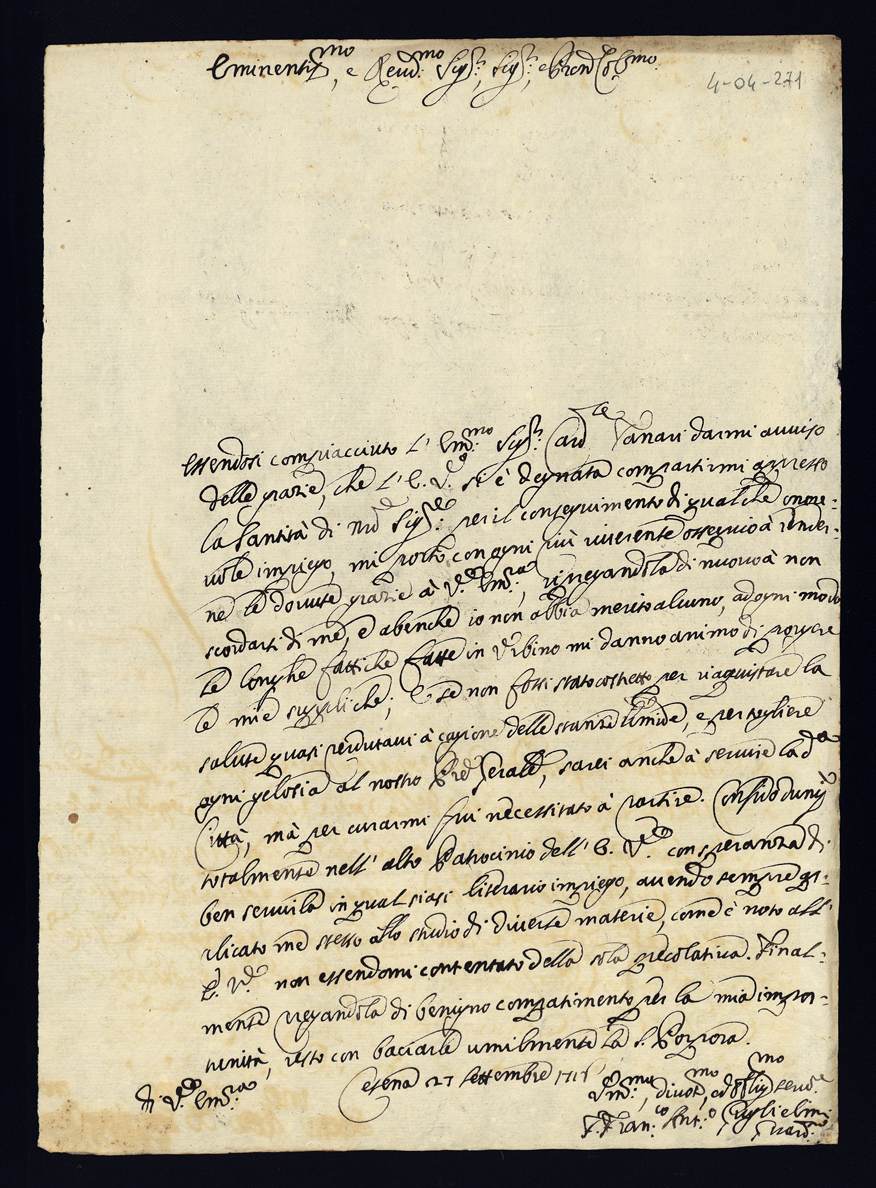 Eminentiss.mo, e Reud.mo Sig.r, Sig.r, e Pron Col.mo
4-04-271
Essendosi compiacciuto l' Em.mo Sig.r Card.le Tanari darmi auuiso
delle grazie, che l' E. V.ra si è degnata compartirmi appresso
la Santità di nro Sig.re per il conseguimento di qualche onore-
uole impiego, mi porto con ogni più riuerente ossequio à render-
ne le douute grazie à V.ra Em.za, pregandola di nuouo à non
scordarsi di me, e abenche io non abbia merito alcuno, ad ogni modo
le longhe fattiche fatte in Vrbino mi danno animo di porgere
le mie suppliche; e se non fossi stato costretto per riaquistare la
salute quasi perdutaui à cagione delle stanze umide, e per togliere
ogni gelosia al nostro Pre Gerale, sarei anche à seruire la d.a
Città, mà per curarmi fui necessitato à partire. Confido dunq
totalmente nell' alto Patrocinio dell' E. V.ra con speranza di
ben seruirla in qual siasi literario impiego, auendo sempre ap-
plicato me stesso allo studio di diuerse materie, come è noto all'
E. V.ra non essendomi contentato della sola specolatiua. Final-
mente pregandola di benigno compatimento per la mia impor-
tunità, resto con baciarle umilmente la S. Porpora.
Di V.ra Em.za
Cesena 27 Settembre
Vm.mo, diuot.mo, ed obblig.mo seru.re
F. Fran.co Ant.o Guglielmi